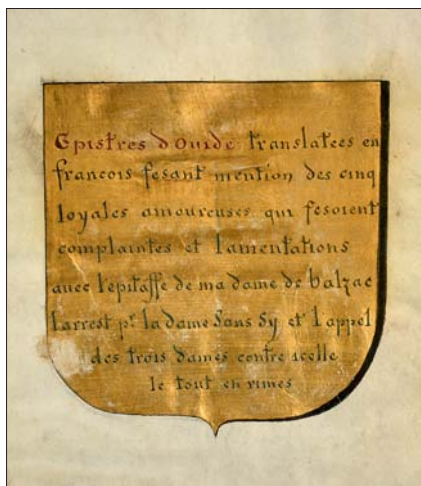 Epistres dOuide translatees en
francois fesant mention des cinq
loyales amoureuses qui fesoient
complaintes et lamentations
auec lepitaffe de ma dame de balzac
larrest pr la dame Sans Sy et lappel
des trois dames contre icelle
le tout en rimes